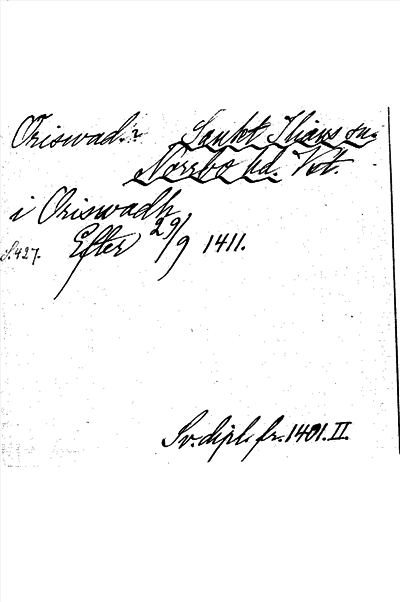 Oriswad.? Sankt Ilians sn.
Norrbo hd. Vstm.
i Oriswadh
S. 427. Efter 29/9 1411.
Sv. dipl. fr. 1401. II.